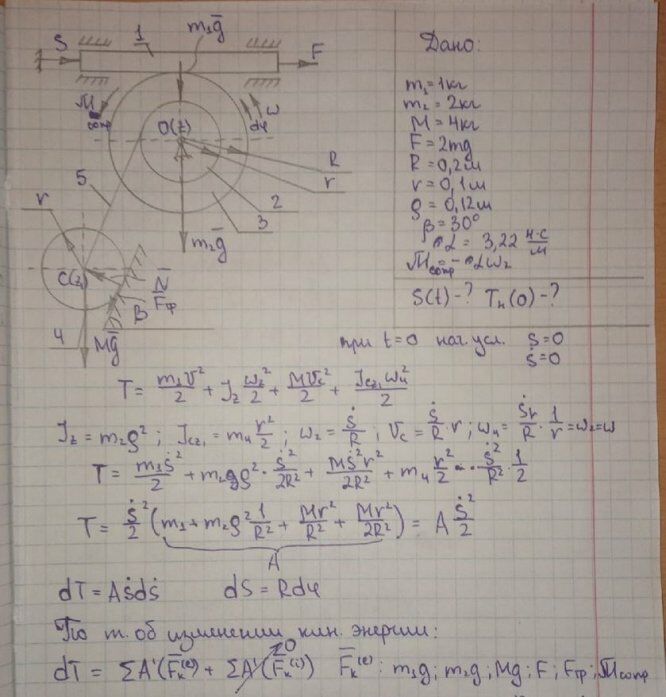 m₁g̅
S
1
F
M̅сопр
ω
dφ
O(z)
R
r
2
3
5
r
m₂g̅
C(z₁)
N̅
F̅φр
B
4
Mg̅
Дано:
m₁ = 1кг
m₂ = 2кг
M = 4кг
F = 2mg
R = 0,2м
r = 0,1м
ρ = 0,12м
β = 30°
α = 3,22 Н·с/м
M̅сопр = -αω₂
S(t) - ? Tн(0) - ?
при t=0 нач усл. S=0
Ṡ=0
T = m₁V²/2 + J_z ω₂²/2 + MV_c²/2 + J_cz₁ω₄²/2
J_z = m₂ρ² ; J_cz₁ = m₄ r²/2 ; ω₂ = Ṡ/R , V_c = Ṡ/R · r ; ω₄ = Ṡr/R · 1/r = ω₂ = ω
T = m₁Ṡ²/2 + m₂ρ² · Ṡ²/2R² + MṠ²r²/2R² + m₄ r²/2 · Ṡ²/R² · 1/2
T = Ṡ²/2 (m₁ + m₂ρ² 1/R² + Mr²/R² + Mr²/2R²) = A Ṡ²/2
A
dT = AṠdṠ dS = Rdφ
По т. об изменении кин. энергии:
dT = ΣA'(F̅ₖ⁽ᵉ⁾) + ΣA'(F̅ₖ⁽ⁱ⁾) 0 F̅ₖ⁽ᵉ⁾: m₁g ; m₂g ; Mg ; F ; Fтр ; M̅сопр